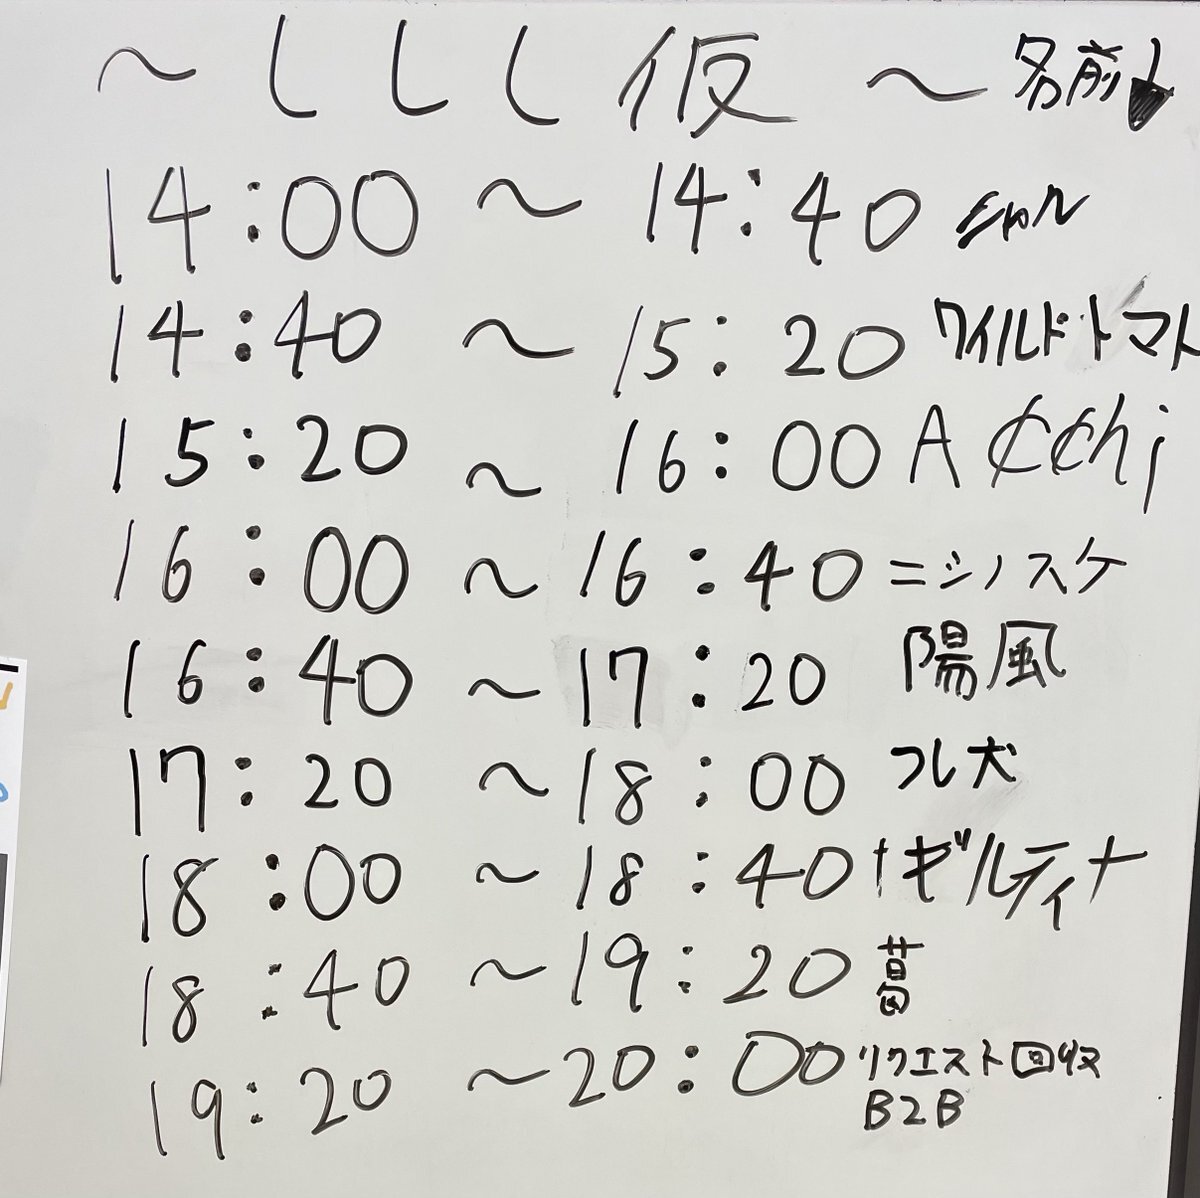 ～ししし仮～ 名前↓
14:00 ～ 14:40 シャル
14:40 ～ 15:20 ワイルドトマト
15:20 ～ 16:00 A₵₵hi
16:00 ～ 16:40 ニシノスケ
16:40 ～ 17:20 陽風
17:20 ～ 18:00 フレ犬
18:00 ～ 18:40 †ギルティナ
18:40 ～ 19:20
19:20 ～ 20:00 リクエスト回収
B2B